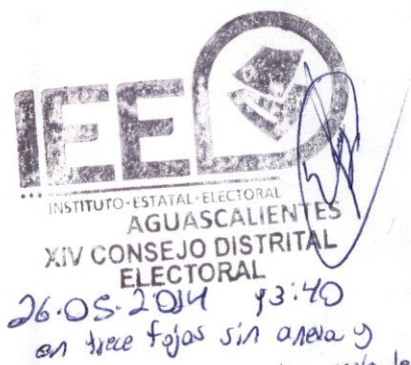 IEE
INSTITUTO-ESTATAL-ELECTORAL
AGUASCALIENTES
XIV CONSEJO DISTRITAL
ELECTORAL
26.05.2014 13:40
en trece fojas sin anexo y